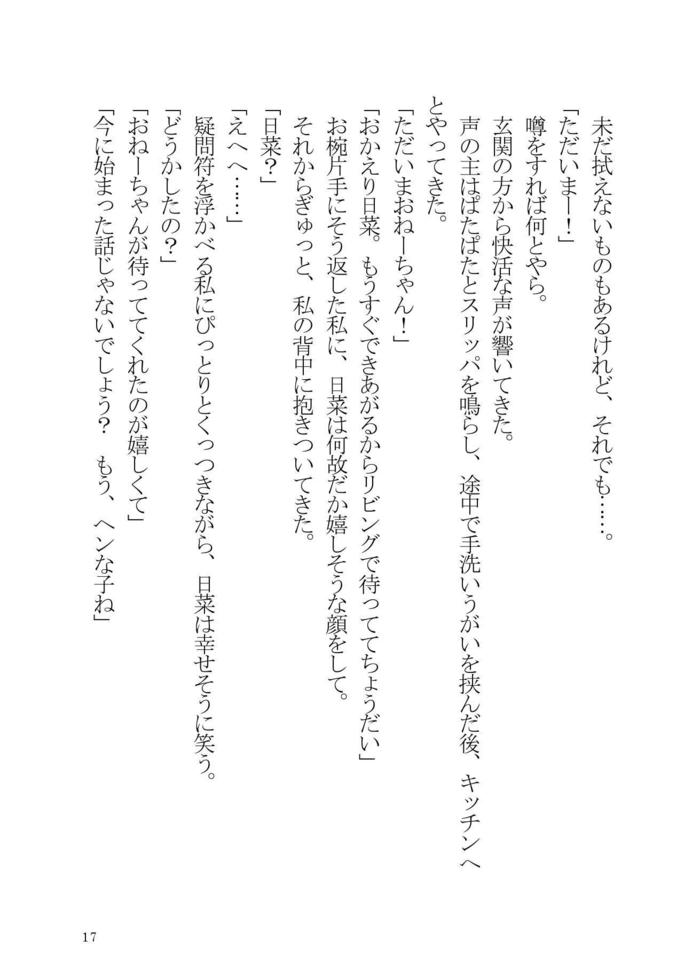 未だ拭えないものもあるけれど、それでも……。
「ただいまー！」
噂をすれば何とやら。
玄関の方から快活な声が響いてきた。
声の主はぱたぱたとスリッパを鳴らし、途中で手洗いうがいを挟んだ後、キッチンへ
とやってきた。
「ただいまおねーちゃん！」
「おかえり日菜。もうすぐできあがるからリビングで待っててちょうだい」
お椀片手にそう返した私に、日菜は何故だか嬉しそうな顔をして。
それからぎゅっと、私の背中に抱きついてきた。
「日菜？」
「えへへ……」
疑問符を浮かべる私にぴっとりとくっつきながら、日菜は幸せそうに笑う。
「どうかしたの？」
「おねーちゃんが待っててくれたのが嬉しくて」
「今に始まった話じゃないでしょう？　もう、ヘンな子ね」
17